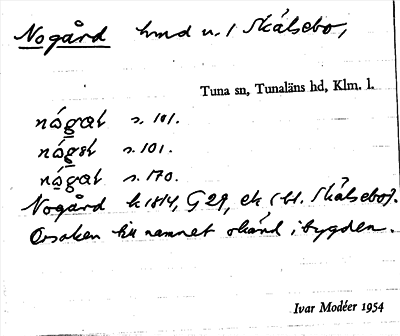 Nogård hmd u. / Skälsebo,
Tuna sn, Tunaläns hd, Klm. l.
nógat s. 101.
nóget s. 101.
nógat s. 170.
Nogård k 1814, G 29, ek (bl. Skälsebo).
Orsaken till namnet okänd i bygden.
Ivar Modéer 1954